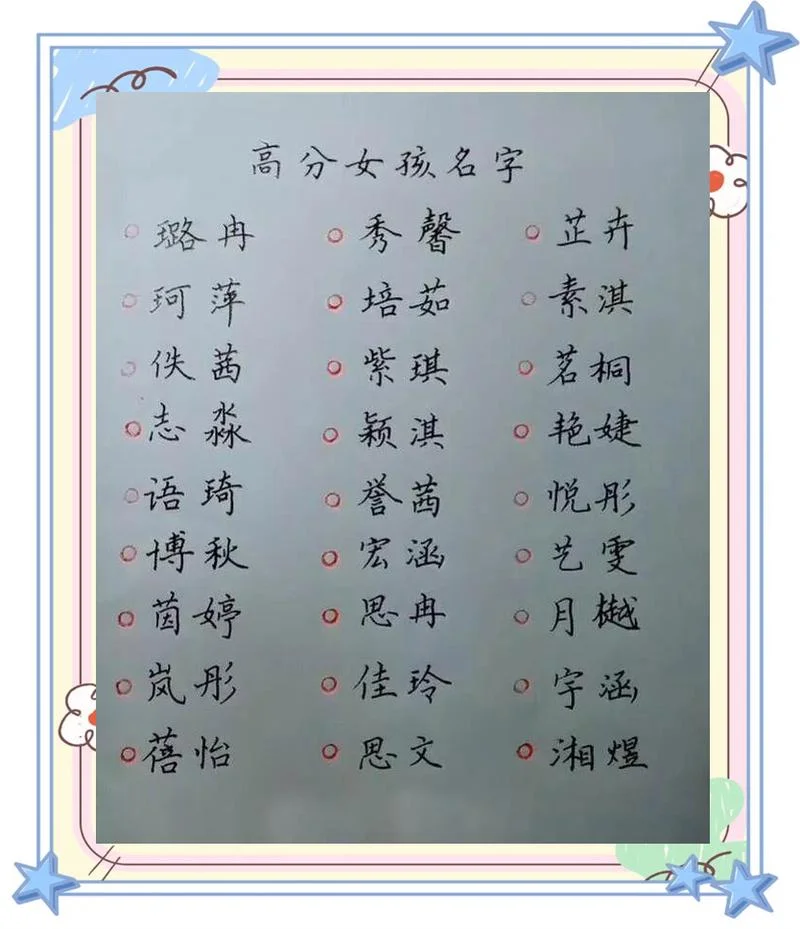 高分女孩名字
○ 璐冉 ○ 秀馨 ○ 芷卉
○ 珂萍 ○ 培茹 ○ 素淇
○ 佚茜 ○ 紫琪 ○ 茗桐
○ 志淼 ○ 颖淇 ○ 艳婕
○ 语琦 ○ 誉茜 ○ 悦彤
○ 博秋 ○ 宏涵 ○ 艺雯
○ 茵婷 ○ 思冉 ○ 月樾
○ 岚彤 ○ 佳玲 ○ 宇涵
○ 蓓怡 ○ 思文 ○ 湘煜